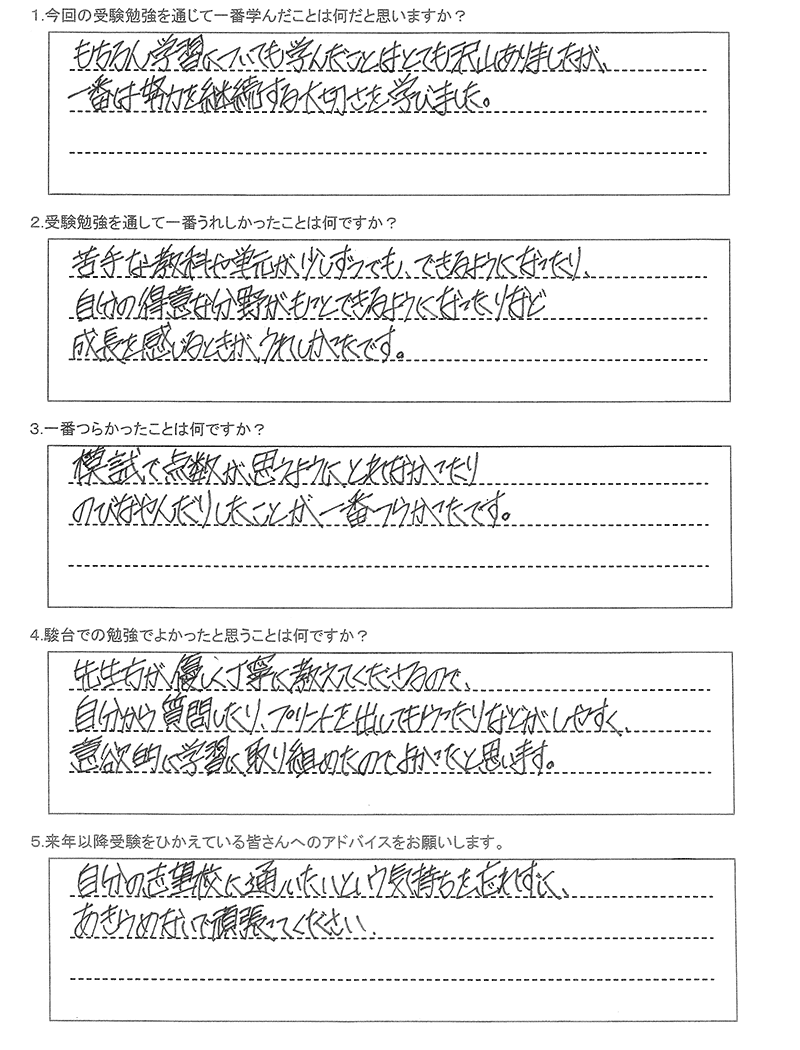 1.今回の受験勉強を通じて一番学んだことは何だと思いますか？
もちろん学習についても学んだことはとても沢山ありましたが、
一番は努力を継続する大切さを学びました。
2.受験勉強を通して一番うれしかったことは何ですか？
苦手な教科や単元が少しずつでも、できるようになったり、
自分の得意な分野がもっとできるようになったりなど
成長を感じるときが、うれしかったです。
3.一番つらかったことは何ですか？
模試で点数が、思うように、とれなかったり
のびなやんだりしたことが、一番つらかったです。
4.駿台での勉強でよかったと思うことは何ですか？
先生方が優しく丁寧に教えてくださるので、
自分から質問したり、プリントを出してもらったりなどがしやすく、
意欲的に学習に取り組めたのでよかったと思います。
5.来年以降受験をひかえている皆さんへのアドバイスをお願いします。
自分の志望校に通いたいという気持ちを忘れずに、
あきらめないで頑張ってください.